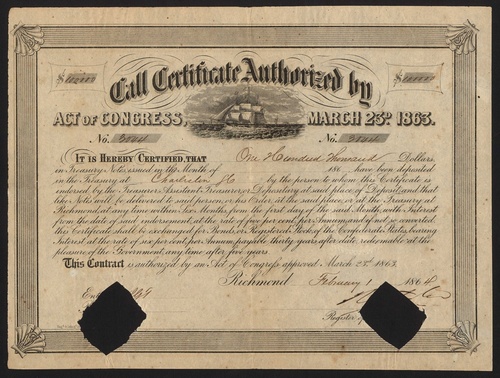 $100000 $100000
Call Certificate Authorized by
ACT OF CONGRESS, MARCH 23D. 1863.
No. 3044 No. 3044
IT IS HEREBY CERTIFIED, THAT One Hundred Thousand Dollars
in Treasury Notes issued in the Month of 186 have been deposited
in the Treasury at Charleston SC by the person to whom this Certificate is
endorsed by the Treasurer, Assistant Treasurer, or Depositary at said place of Deposit, and that
like Notes will be delivered to said person, or his Order, at the said place, or at the Treasury at
Richmond at any time within Six Months from the first day of the said Month, with Interest
from the date of said endorsement at the rate of per cent. per Annum, and if not so converted,
this Certificate shall be exchanged for Bonds, or Registered Stock of the Confederate States, bearing
Interest at the rate of six per cent. per Annum, payable thirty years after date, redeemable at the
pleasure of the Government, any time after five years.
This Contract is authorized by an Act of Congress approved March 23d. 1863.
Richmond February 1 1864
Register